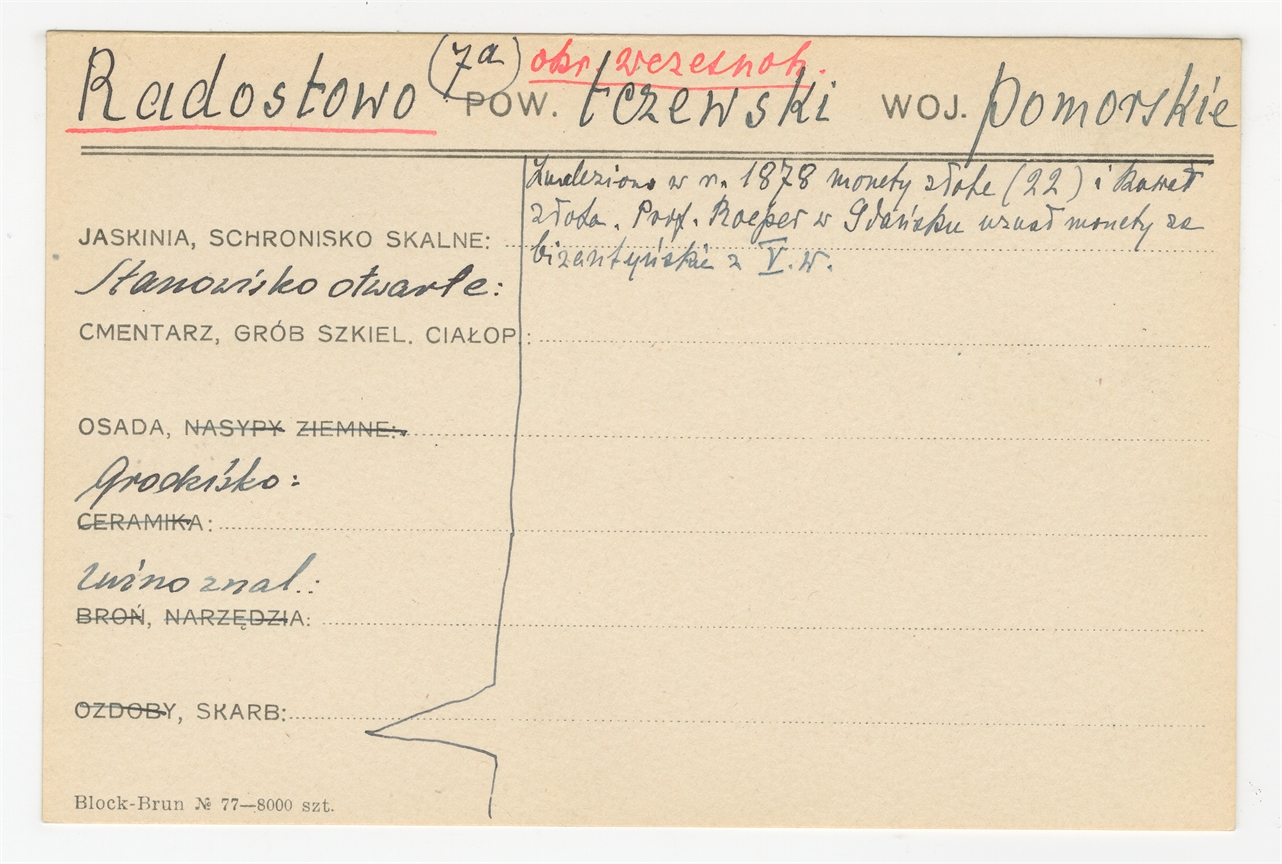 (7a) okr. wczesnoh.
Radostowo POW. tczewski WOJ. pomorskie
Znaleziono w r. 1878 monety złote (22) i kawał
złota. Prof. Roeper w Gdańsku uznał monety za
bizantyńskie z V. w.
JASKINIA, SCHRONISKO SKALNE:
Stanowisko otwarte:
CMENTARZ, GRÓB SZKIEL. CIAŁOP.:
OSADA, NASYPY ZIEMNE:
Grodzisko:
CERAMIKA:
Luźno znal.:
BROŃ, NARZĘDZIA:
OZDOBY, SKARB:
Block-Brun № 77—8000 szt.